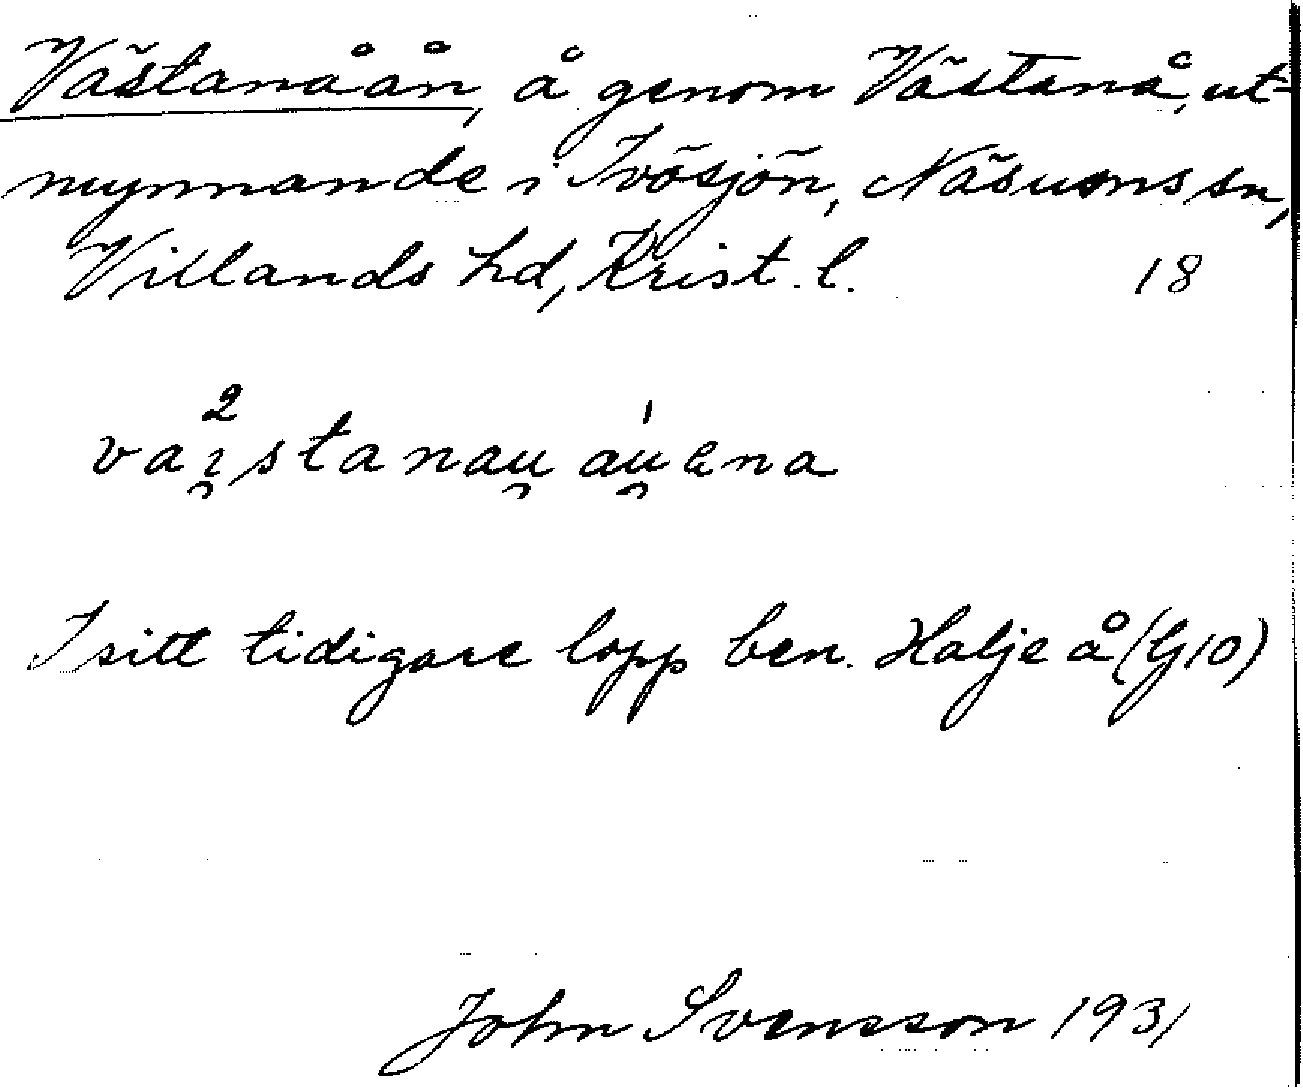 Västanåån, å genom Västanå, ut-
mynnande i Ivösjön, Näsums sn,
Villands hd, Krist. l. 18
va²i̯stanau̯ aú̯ena
I sitt tidigare lopp ben. Halje å (G10)
John Svensson 1931